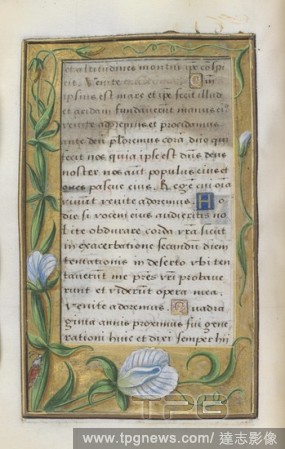 et altitudines montiū ipe cōspi
cit. Venite Qm̄
ipsius est mare et ipe fecit illud
et aridam fundaverunt manus ei⁹
venite adoremus et procidamus
ante deū ploremus corā dño qui
fecit nos quia ipse est dñs deus
noster nos aut̄ populus eius et
oves pascue eius. Regē cui oīa
vivunt venite adoremus. Ho
die si vocem eius audieritis no
lite obdurare corda vrā sicut
in exacerbatione secundū diem
tentationis in deserto vbi ten
taverunt me prēs vrī probave
runt et viderunt opera mea.
Venite adoremus. Quadra
ginta annis proximus fui gene
rationi huic et dixi semper hii
TPG
www.tpgnews.com / 達志影像